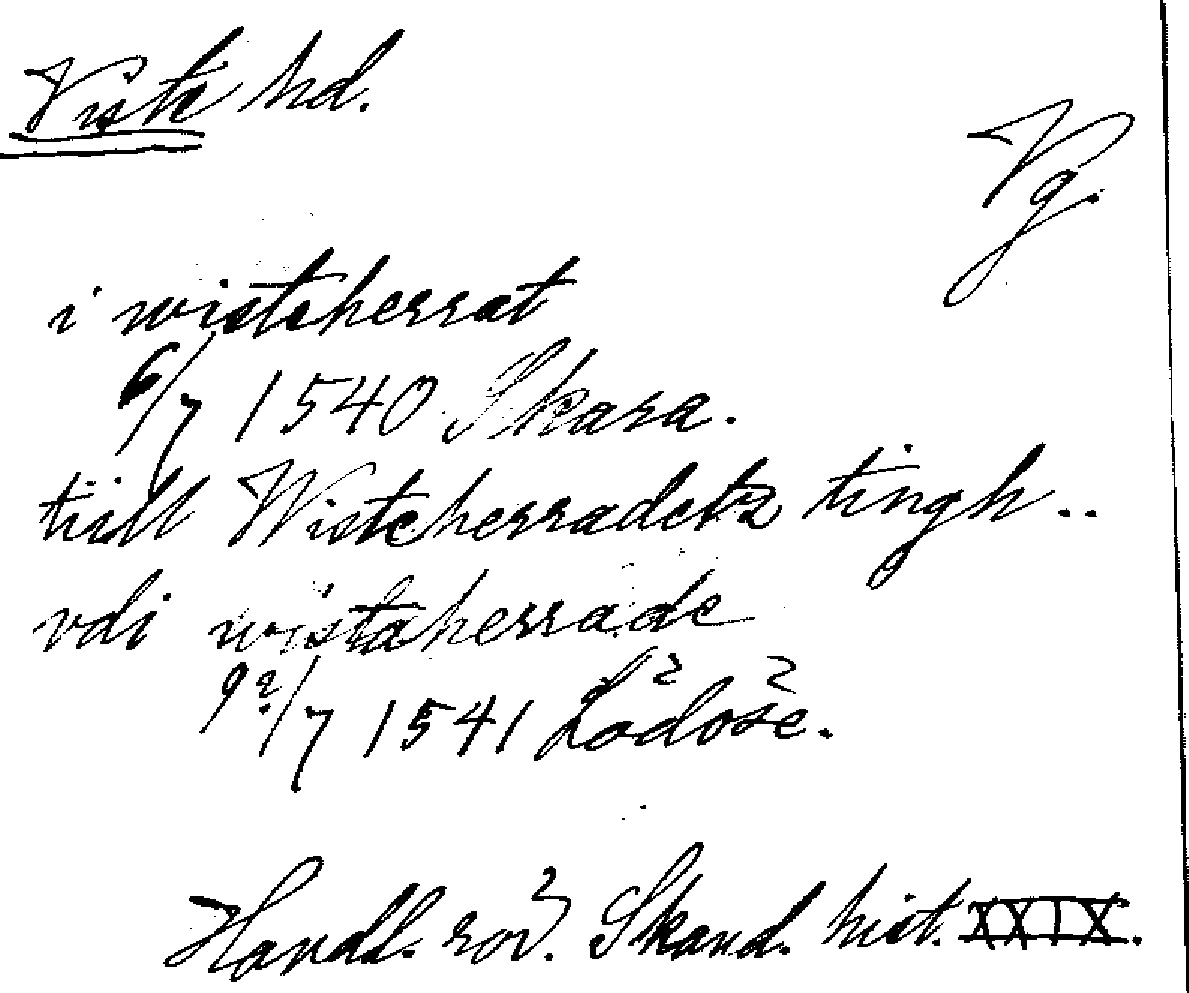 Viste hd.
Vg.
i wisteherrat
6/7 1540 Skara.
tiill Wisteherradetz tingh..
vdi wistaherrade
9?/7 1541 Lödöse.
Handl. rör. Skand. hist. XXIX.